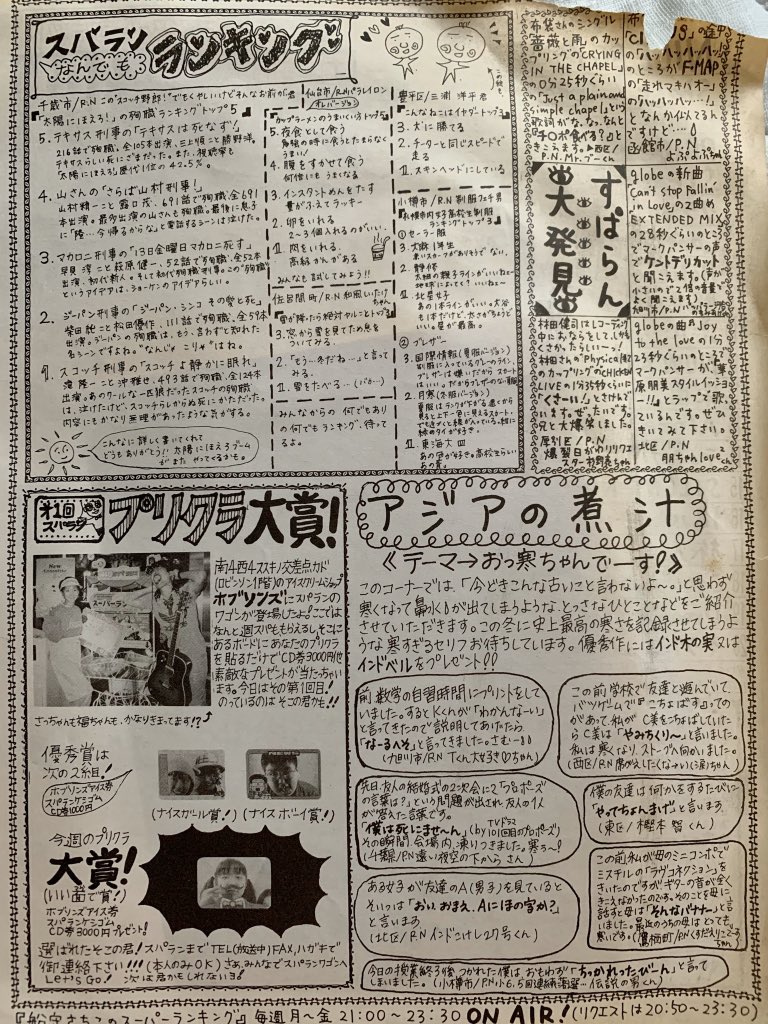 スパラン
なんでも
ランキング
千歳市/R.N このスコッチ野郎!でもくやしいけどそんなお前が君
「太陽にほえろ!」の殉職ランキングトップ5
5. テキサス刑事の「テキサスは死なず!」
216話で殉職。全105本出演。三上順こと勝野洋。
テキサスらしい死にざまだった。また、視聴率も
太陽にほえろ歴代1位の42.5%。
4. 山さんの「さらば山村刑事!」
山村精一こと露口茂。691話で殉職。全691
本出演。最多出演の山さんも殉職。最後に息子
に「隆…今帰るからな」と電話するシーンは泣けた。
3. マカロニ刑事の「13日金曜日マカロニ死す」
早見淳こと萩原健一。52話で殉職。全52本
出演。初代新人。そして初代殉職刑事。この"殉職"
というアイデアは、ショーケンのアイデアらしい。
2. ジーパン刑事の「ジーパン・シンコ その愛と死」
柴田純こと松田優作。111話で殉職。全59本
出演。ジーパンの殉職は、もう、言わずと知れた
名シーンですよね。"なんじゃ こりゃ"はね。
1. スコッチ刑事の「スコッチよ静かに眠れ」
滝隆一こと沖雅也。493話で殉職。全124本
出演。あのクールな一匹狼だったスコッチの殉職
は、泣けたけど、スコッチらしからぬ死にかただった。
内容にもかなり無理があったような気がする。
こんなに詳しく書いてくれて
どうもありがとう!! 太陽にほえろブーム
がまた やってくるかも。
仙台市/R.Nパラレイロン
オレバージョン
カップラーメンのうまいくい方トップ5
5. 夜食として食う
勉強の時に食うとたまらなく
うまい!
4. 腹をすかせて食う
何倍にもうまくなる
3. インスタントめんをたす
量がふえてラッキー
2. 卵をいれる
2~3個入れるのがいい。
1. 肉をいれる。
高級かんがある
みんなも試してみよう!!
住吉間町/R.N 和風しいたけ
雪が降たら絶対ヤルことトップ3
3. 窓から雪を見てため息を
ついてみる。
2. 「もう…冬だね…」と言って
みる。
1. 雪をたべる…(バカ…)
みんなからの何でもあり
の何でもランキング、待っ
てるよ。
豊平区/三淵 洋平君
こんなねこはイヤダートップ3
3. 犬に勝てる
2. チーターと同じスピードで
走る
1. スキンヘッドにしている
小樽市/R.N 制服フェチ男
札幌市内女子高校生制服
ランキングトップ3
①セーラー服
3. 大麻 1年生
2. 静修
1. 北星女子
② ブレザー
3. 国際情報(夏服バージョン)
2. 月寒(冬服バージョン)
1. 東海大四
布袋さんのシングル
「薔薇と雨」のカッ
プリングの「CRYING
IN THE CHAPEL」
0分25秒ぐらい
「Just a plain and
simple chapel」という
歌詞がな、なんと
「チ○ポ食べる?」と
きこえます。●西区/
P.N.Mr.ブーくん
の途中
「ハッハッハッハッ」
のところがF-MAP
の「走れマキバオー」
の「ハッハッハッ…」
となんか似てるん
ですけど…○
函館市/P.N
よぷよぷちゃん
すぱらん
大発見
globeの新曲
「Can't Stop Fallin'
in Love」の2曲め
EXTENDED MIX
の28秒ぐらいのところ
でマークパンサーの声で
「ケントデリカット」
と聞こえます。(声が
小さいので大倍の音量で
よく聞こえます)
林田健司はレコーディング
中におならをしてしまい
くさかったらしい…!
林田さんの「Physical」
のカップリングの「CHICKEN
LIVE」の1分35秒ぐらいに
「くさーい!」とさけんで
います。ぜったいです。
兄と大爆笑しました。
尾引区/P.N
globeの曲「Joy
to the love」の1分
23秒ぐらいのところで
マークパンサーが、「華
原朋美スタイルイッショ
!!」とラップで歌っ
ているんです。ぜひ
きいてみて下さい。
北区/P.N
朋ちゃんloveさん
第1回
スパラン
プリクラ大賞!
南4西4ススキノ交差点カド
(ロビンソン1階)のアイスクリームショップ
ホブソンズにスパランの
ワゴンが登場したよ!ここでは
なんと週スパももらえるし、そこに
あるボードにあなたのプリクラ
を貼るだけでCD券3000円他
素敵なプレゼントが当たっちゃい
ます。今日はその第1回目!
のっているのは そこの君かも!!
スーパーラン
さっちゃんも福ちゃんも、かなりきまってます!?
優秀賞は
次の2組!
ホブソンズアイス券
スパランケシゴム
CD券1000円
(ナイスガール賞!)
(ナイス ボーイ賞!)
今週のプリクラ
大賞!
(いい面で賞!)
ホブソンズアイス券
スパランケシゴム
CD券3000円プレゼント!
選ばれたそこの君! スパランまでTEL(放送中)FAX、ハガキで
御連絡下さい!!! (本人のみOK) さあ、みんなでスパランワゴンへ
Let's Go! 次は君かもしれないョ!
アジアの煮汁
《テーマ→おっ寒ちゃんでーす!》
このコーナーでは、「今どきこんな古いこと言わないよ~。」と思わず
寒くなって鼻水が出てしまうような、とっさなひとことなどをご紹介
させていただきます。この冬に史上最高の寒さを記録させてしまうよう
な寒すぎるセリフお待ちしています。優秀作にはインド木の実又は
インドベルをプレゼント!!
前、数学の自習時間にプリントをして
いました。するとKくんが「わかんなーい」
と言ってきたので説明してあげたら
「なーるへそ」と言ってきました。さむー!!
(旭川市/R.N Tくん大好き♡ちゃん)
この前学校で友達と遊んでいて、
バツゲームで『こちょばす』っての
があって、私がC美をこちょばしていた
らC美は「やみちくり~」と言いました。
私は寒くなり、ストーブへ向かいました。
先日友人の結婚式の2次会に2「プロポーズ
の言葉は?」という問題が出され、友人の1人
が答えた言葉です。
TVドラマ
「僕は死にませ~ん」(by 101回目のプロポーズ)
その瞬間、会場内、凍りつきました。寒う~!
(千葉県/P.N遠い夜空の下から さん)
僕の友達は何かをするたびに
「やってちょんまげ」と言います。
(東区/樫本 智くん)
ある女子が友達のA(男子)を見ていると
そいつは「おい、おまえ、Aにほの字か?」
と言います
(北区/R.Nインドこけし27号くん)
この前、私が母のミニコンポで
ミスチルの「ラヴコネクション」を
きいたのですがギターの音が全く
きこえなかったのです。そのことを母に
話すと母は「そんなバナナー」と言
いました。最近のうちの母はとっても、
寒いです。
今日の授業終了後つかれた僕は、おもわず「ちっかれったび~ん」と言って
しまいました。(小樽市/R.N
『船守さちこのスーパーランキング』毎週月~金 21:00~23:30 ON AIR! (リクエストは20:50~23:30)